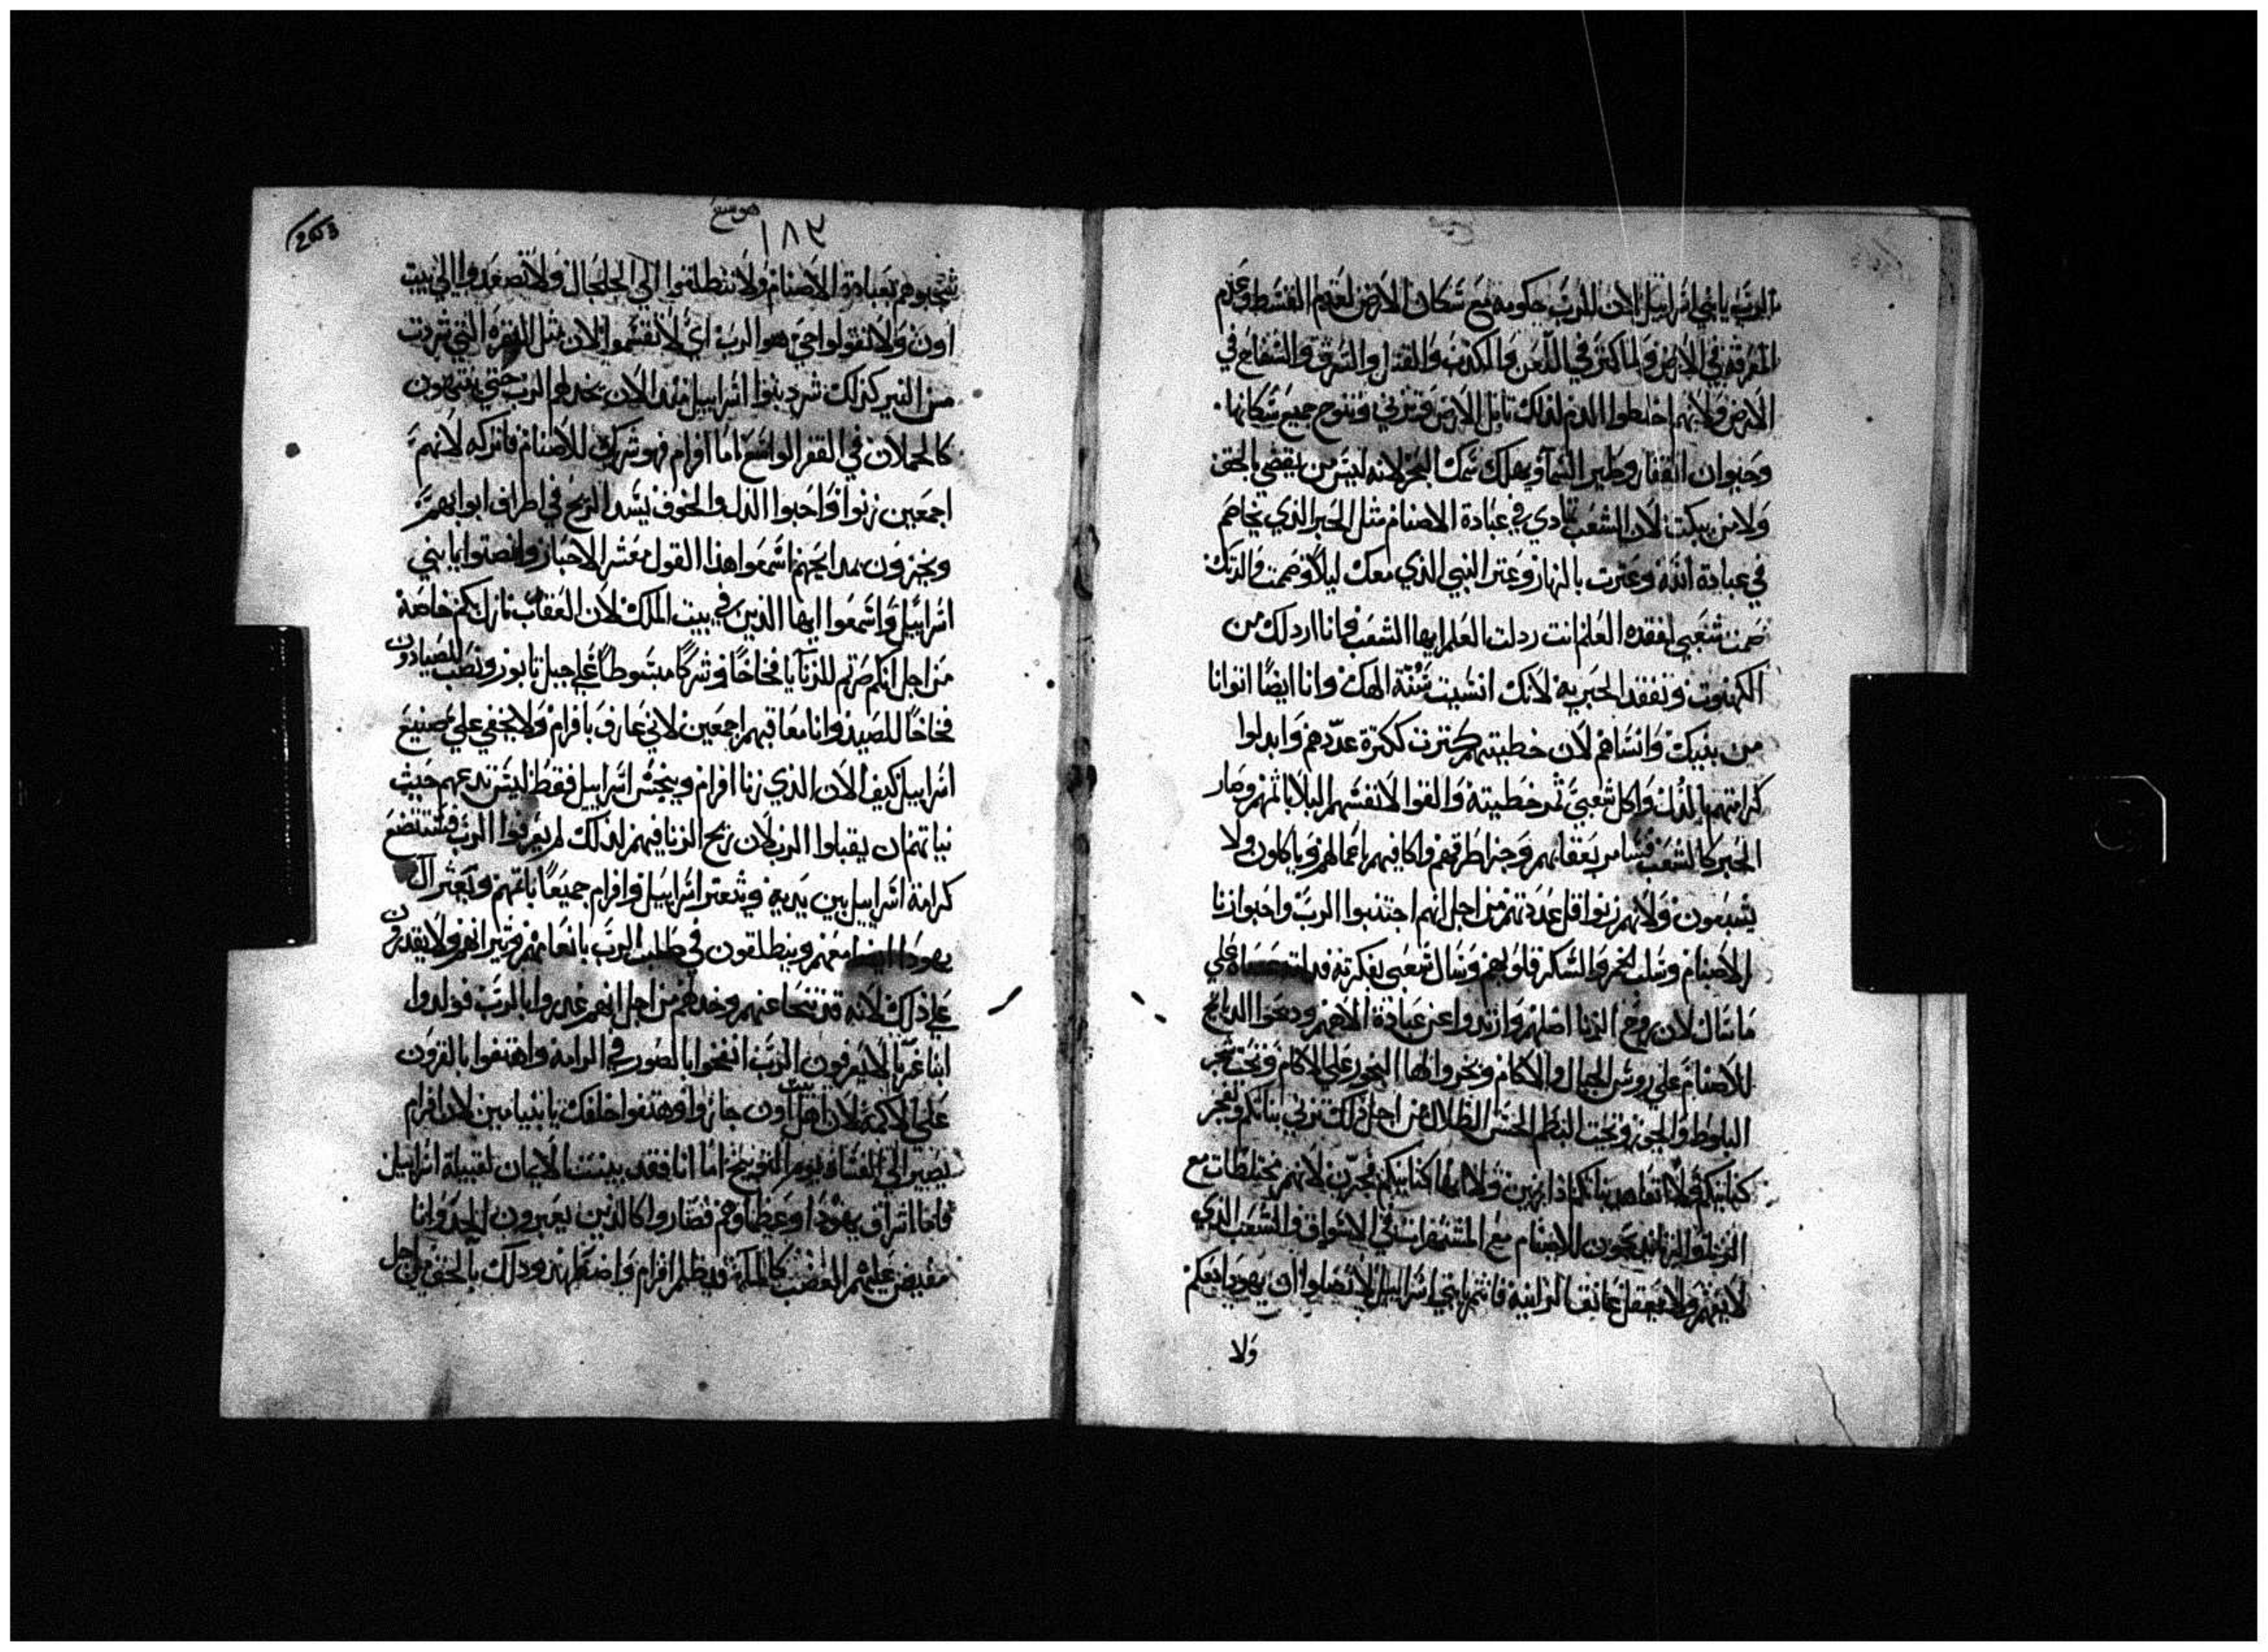 الرب يا بني اسراييل لان للرب حكومه مع سكان الارض لعدم القسط وعدم
المعرفه في الارض ولما كثر في اللعن والكذب والقتل والسرق والسفاح في
الارض ولانهم اخلطوا الدم لذلك الارض وتنوح جميع سكانها
وحيوان القفار وطير السما ويهلك سمك البحر لانه ليس من يقضي بالحق
ولا من يبكت لان الشعب تمادي في عبادة الاصنام مثل الحبر الذي يخاصم
في عبادة الله وعثرت بالنهار وعثر النبي الذي معك ليلا وصمت والدتك
صمت شعبي لفقده العلم انت رذلت العلم ايها الشعب فانا ارذلك من
الكهنوت وتفقد الحبريه لانك انسيت سنة الهك وانا ايضا انوانا
من بنيك وانساهم لان خطيتهم كثرت ككثرة عددهم وابدلوا
كرامتهم بالذل واكل شعبي خطيته والقوا لانفسهم البلا باثمهم وصار
الحبر كالشعب فسامر بعقابهم وجزا طرقهم واكافيهم اعمالهم وياكلون ولا
يشبعون ولانهم زنوا اقل عددهم من اجل انهم اجتنبوا الرب واحبوا زنا
الاصنام وسلب الخمر والسكر قلوبهم وسال شعبي بفكرته علي
ما سال لان روح الزنا اضلهم وارتدوا عن عبادة الاههم ودبحوا الدبايح
للاصنام علي روس الجبال والاكام وبخروا لها البخور علي الاكام وتحت شجر
البلوط والجوز وتحت البطم الحسن الظلال من اجل ذلك تزني بناتكم وتفجر
كنايتكم ولا اتعاهد بناتكم اذا زنين ولا ايضا كنايتكم فجرن لانهم مختلطات مع
الزناه يدبحون للاصنام مع في الاسواق والشعب الذي
لا يفهم ولا يعقل عانق الزانيه فانتم يا بني اسراييل لا تصلوا اي يهودا معكم
ولا
هوشع
١٨٣
203
تنجسوهم بعبادة الاصنام ولا تنطلقوا الي الجلجال ولا تصعدوا الي بيت
اون ولا تقولوا حي هو الرب اي لا تقسموا لان مثل البقره التي شردت
من النير كذلك شرد بنوا اسراييل منذ الان الرب حتي ينتهون
كالحملان في القفر الواسع اما افرام فهو شريك للاصنام فاتركه لانهم
اجمعين زنوا واحبوا الذل والخوف يشد الريح في اطراف ابوابهم
ويخزون بمدابحهم اسمعوا هذا القول معشر الاحبار وانصتوا يا بني
اسراييل واسمعوا ايها الذين في بيت الملك لان العقاب نازل بكم خاصة
من اجل انكم صرتم للزنايا فخاخا وشركا مبسوطا علي جبل تابور ونصب الصيادون
فخاخا للصيد وانا معاقبهم اجمعين لاني عارف بافرام ولا يخفي علي صنيع
اسراييل كيف الان الذي زنا افرام وينجس اسراييل فقط ليس تدعهم خبث
نياتهم ان يقبلوا الرب لان ريح الزنا فيهم لذلك لم يعرفوا الرب فستتضع
كرامة اسراييل بين يديه وتتعتر اسراييل وافرام جميعا باثمهم وتعثر ال
يهودا ايضا معهم وينطلقون في طلب الرب باغنامهم وتيرانهم ولا يقدرون
علي ذلك لانه قد تنحا عنهم وخدلهم من اجل انهم غدروا بالرب فولدوا
ابنا غربا لا يعرفون الرب انفخوا بالصور في الرامه واهتفوا بالقرون
علي الاكمه لان اهل بيت اون جازوا وهتفوا خلفك يا بنيامين لان افرام
يصير الي الفساد يوم التوبيخ اما انا فقد بينت الايمان لقبيلة اسراييل
فاما اشراف يهودا وعظماوهم فصاروا كالذين يعبرون الحد وانا
مفيض عليهم الغضب كالما قد ظلم افرام واضطهد ودلك بالحق من اجل